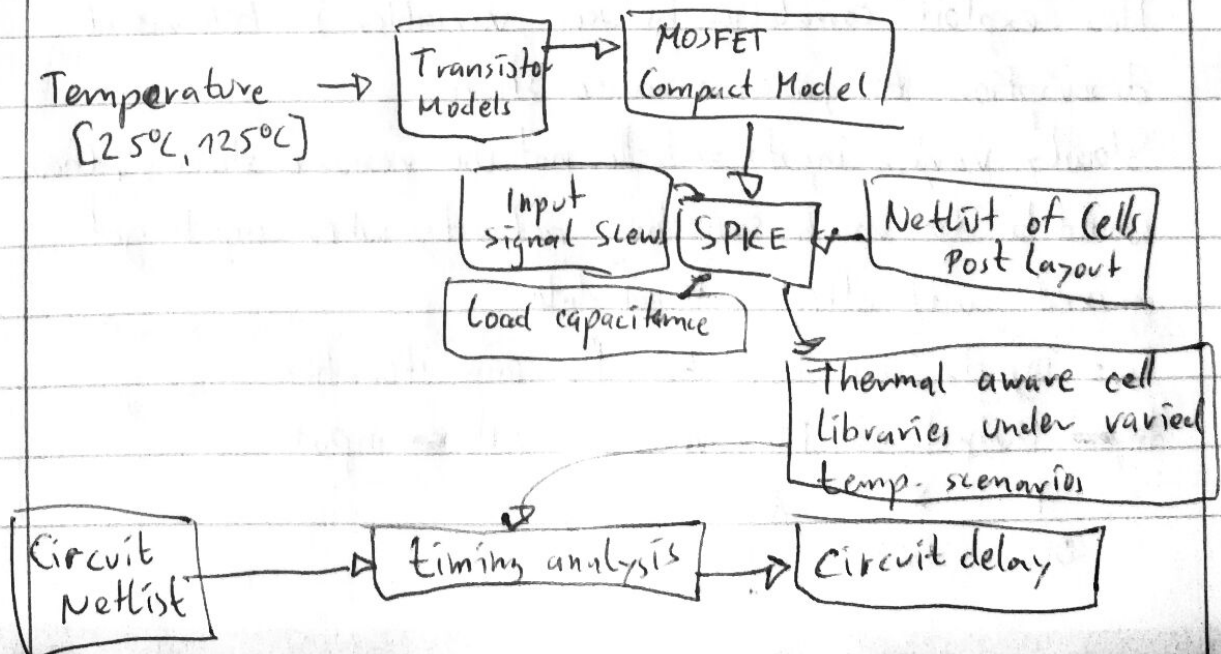 Temperature
[25°C, 125°C]
Transisto
Models
MOSFET
Compact Model
Input
signal Slew
SPICE
Netlist of Cells
Post Layout
Load capacitance
Thermal aware cell
Libraries under varied
temp. scenarios
Circuit
Netlist
timing analysis
Circuit delay